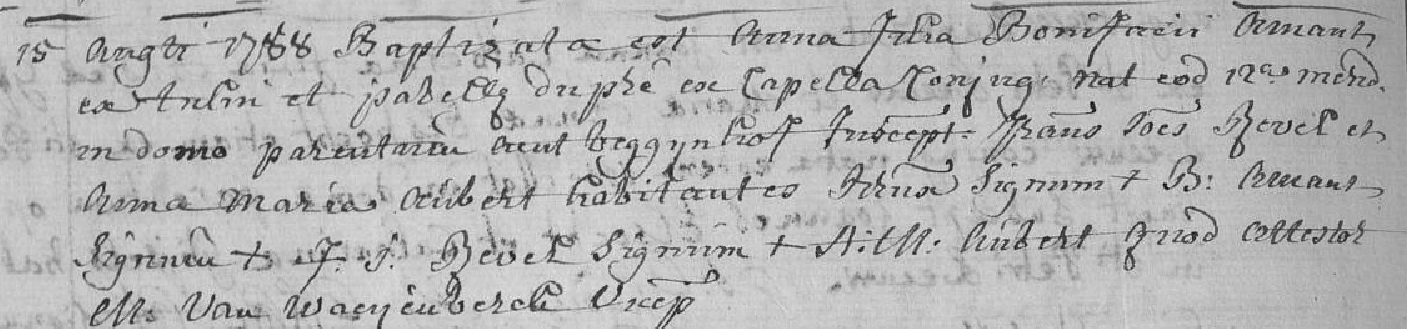 15 Augti 1788 Baptizata est Anna filia Bonifacii Amant
ex et duphè ex Capella Conjug: nat eod 12a
in domo parentum aent beggynhof suscept. Frans Joês Revel et
Anna Maria Aubert habitantes Signum + B: Amant
Signum + J. J. Revel Signum + A: M: Aubert quod Attestor
M: Van Waeyenberch